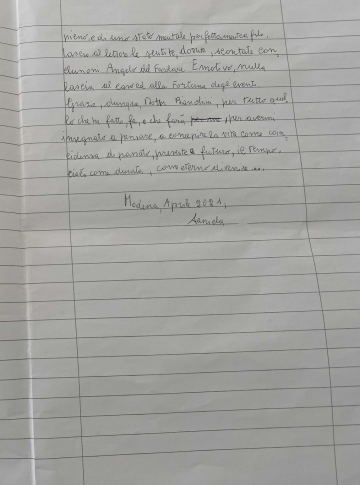 pieno, e di uno stato mentale perfettamente
lascia al lettore le sentite, dorun, scontate con,
Angelo del Focolare Emotivo, nulla
lascia al caso ed alla Fortuna degli eventi.
Grazie, dunque, Dott. Bianchin, per tutto quel,
lo che ha fatto, fa, e che farà, per avermi
insegnato a pensare, a concepire la vita come coin,
cidenza di passato, presente e futuro, il tempo,
cioè, come durata, come eterno
Modena, Aprile 2021,
Daniela